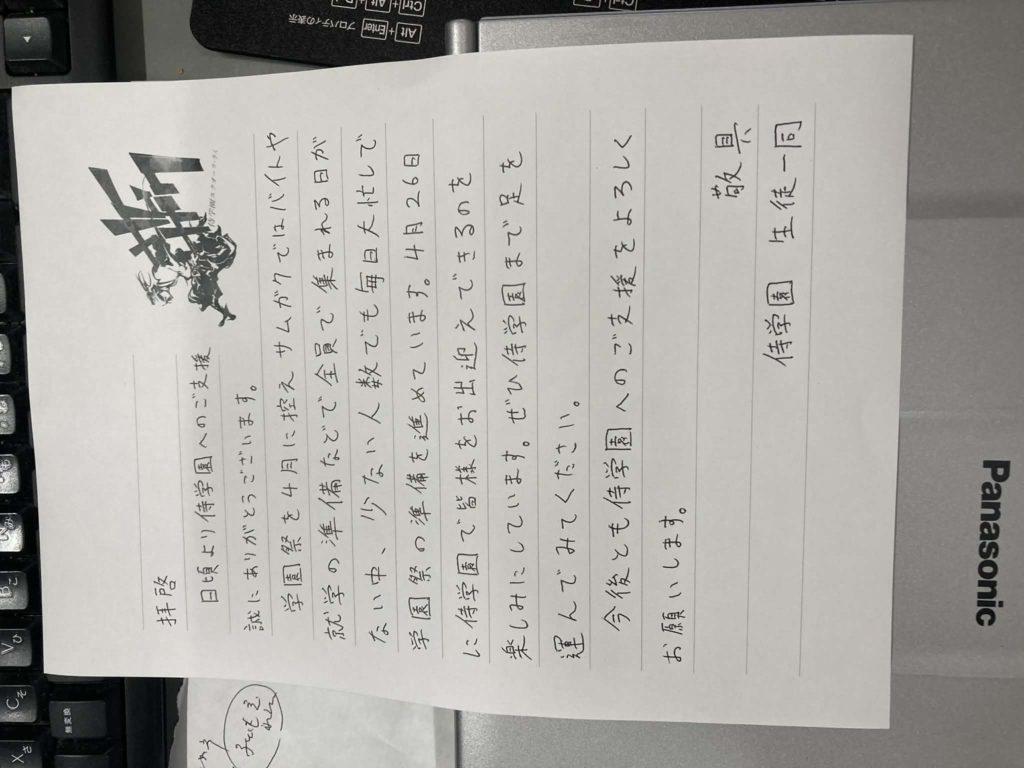 拝啓
日頃より侍学園へのご支援
誠にありがとうございます。
学園祭を4月に控えサムガクではバイトや
就学の準備などで全員で集まれる日が
ない中、少ない人数でも毎日大忙しで
学園祭の準備を進めています。4月26日
に侍学園で皆様をお出迎えできるのを
楽しみにしています。ぜひ侍学園まで足を
運んでみてください。
今後とも侍学園へのご支援をよろしく
お願いします。
敬具
侍学園 生徒一同
Panasonic
プロパティの表示
Alt + Enter
Ctrl + Alt +
無変換